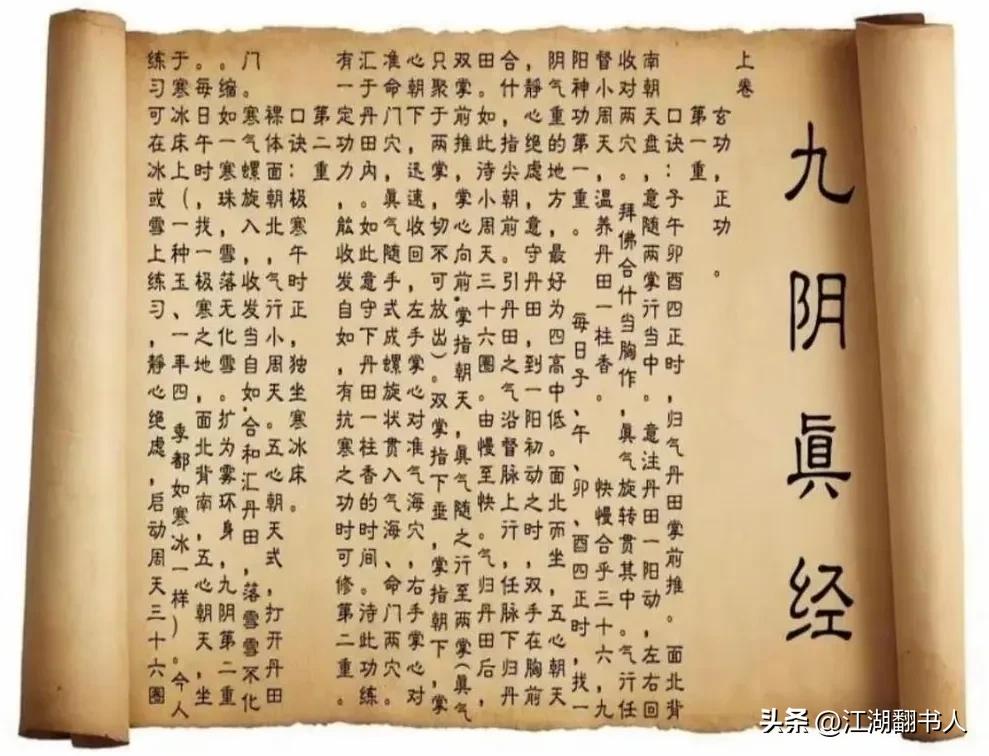 九阴眞经
上卷
玄功，正功。
第一重
口诀：子午卯酉四正时，归气丹田掌前推。面北背
南朝天盘，意随两掌行当中。意注丹田一阳动，左右回
收对两穴。拜佛合什当胸作，眞气旋转贯其中。气行任
督小周天，温养丹田一柱香。快慢合乎三十六，九
阳神功第一重。每日子、午、卯、酉四正时，找一
阴气重的地方，最好为四高中低。面北而坐，五心朝天
，静心绝虑，意守丹田，到一阳初动之时，双手在胸前
合什，指尖朝前。引丹田之气沿督脉上行，任脉下归丹
田。如此待小周天三十六圈。由慢至快。气归丹田后，
双掌前推，掌心向前，掌指朝天，眞气随之行至两掌（眞气
只聚于两掌，切不可放出）。双掌指下垂，掌指朝下，掌
心朝下，迅速收回，左手掌心对准气海穴，右手掌心对
准命门穴，眞气随手式成螺旋状贯入气海、命门两穴。
汇于丹田内。如此意守下丹田一柱香的时间。待此功练
有一定功力，能收发自如，有抗寒之功时可修第二重。
第二重
口诀：极寒午时正，独坐寒冰床。
裸体面朝北，气行小周天。五心朝天式，打开丹田
门。寒气螺旋入，收发当自如，合和汇丹田，落雪雪不化
。缩如一寒珠，雪落无化雪。扩为雾环身，九阴第二重
。每日午时，找一极寒之地，面北背南，五心朝天，坐
于寒冰床上（一种玉、一年四季都如寒冰一样）。今人
练习可在冰或雪上练习，静心绝虑，启动周天三十六圈
头条 @江湖翻书人